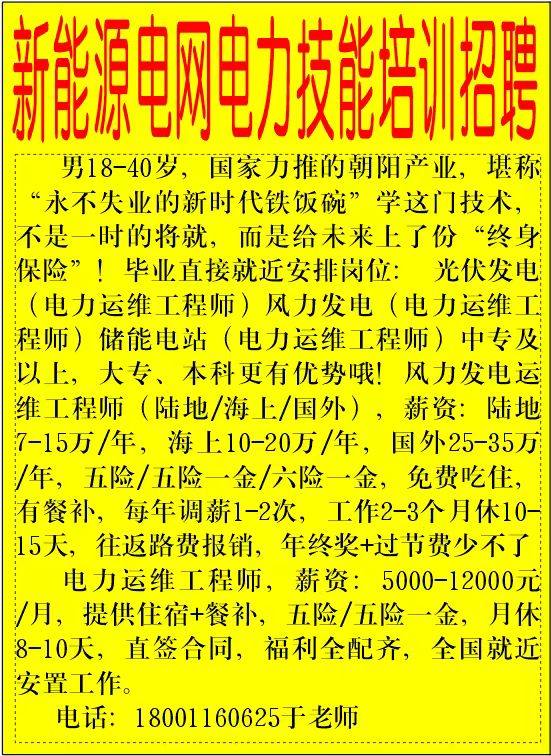 新能源电网电力技能培训招聘
男18-40岁，国家力推的朝阳产业，堪称
“永不失业的新时代铁饭碗”学这门技术，
不是一时的将就，而是给未来上了份“终身
保险”！毕业直接就近安排岗位： 光伏发电
（电力运维工程师）风力发电（电力运维工
程师）储能电站（电力运维工程师）中专及
以上，大专、本科更有优势哦！风力发电运
维工程师（陆地/海上/国外），薪资：陆地
7-15万/年，海上10-20万/年，国外25-35万
/年，五险/五险一金/六险一金，免费吃住，
有餐补，每年调薪1-2次，工作2-3个月休10-
15天，往返路费报销，年终奖+过节费少不了
电力运维工程师，薪资：5000-12000元
/月，提供住宿+餐补，五险/五险一金，月休
8-10天，直签合同，福利全配齐，全国就近
安置工作。
电话：18001160625于老师